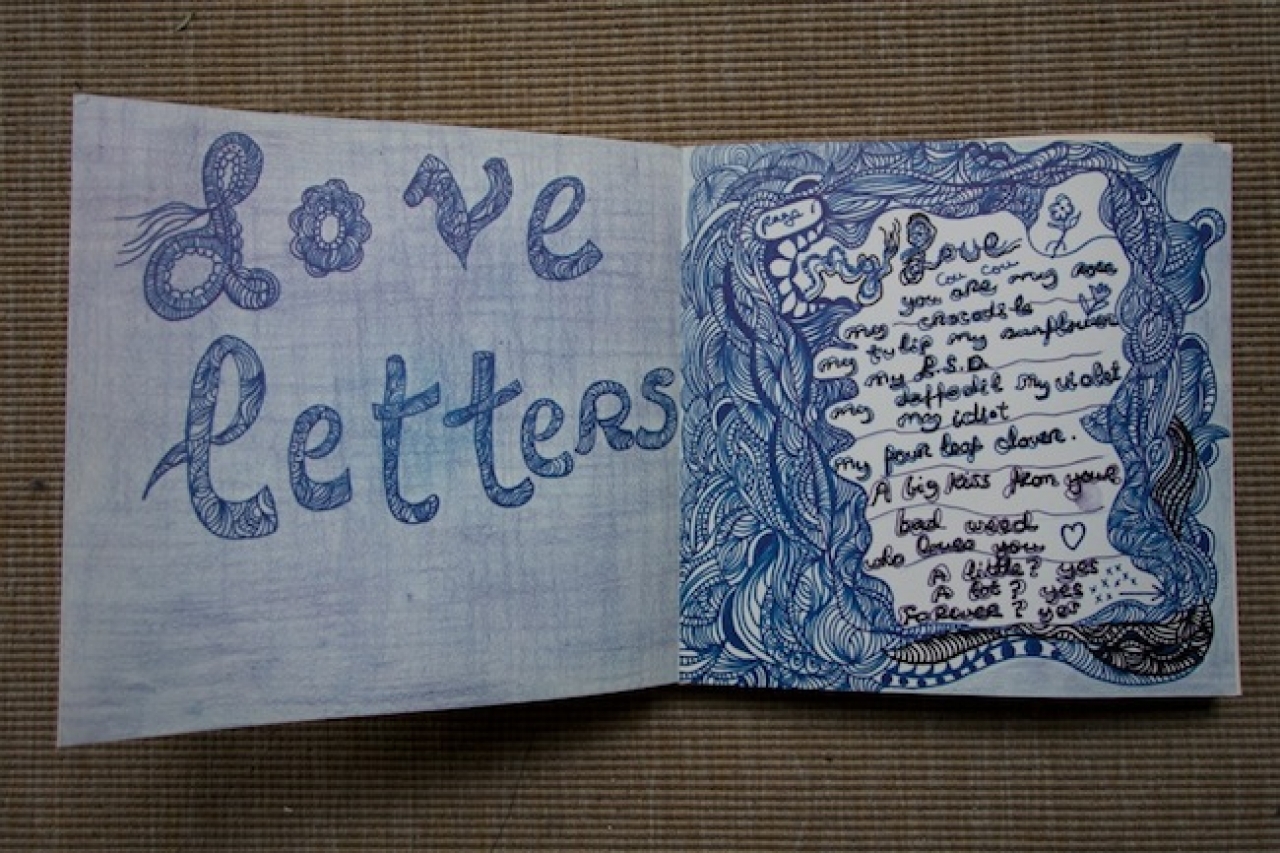 Love
letteRS
Page 1
My Love
Cou Cou
you are my rose
my crocodile
my tulip my sunflower
my L.S.D.
my daffodil my violet
my idiot
my four leaf clover.
A big kiss from your
bad weed
who loves you
A little? yes
A lot? yes
Forever? yes